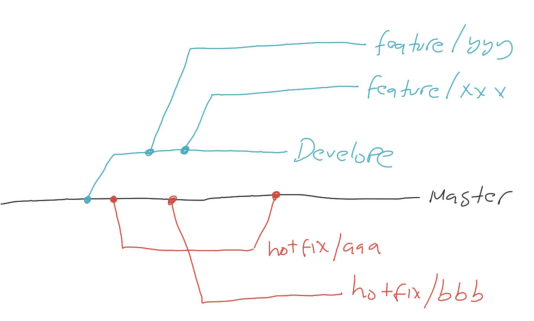 feature/yyy
feature/xxx
Develope
Master
hotfix/aaa
hotfix/bbb